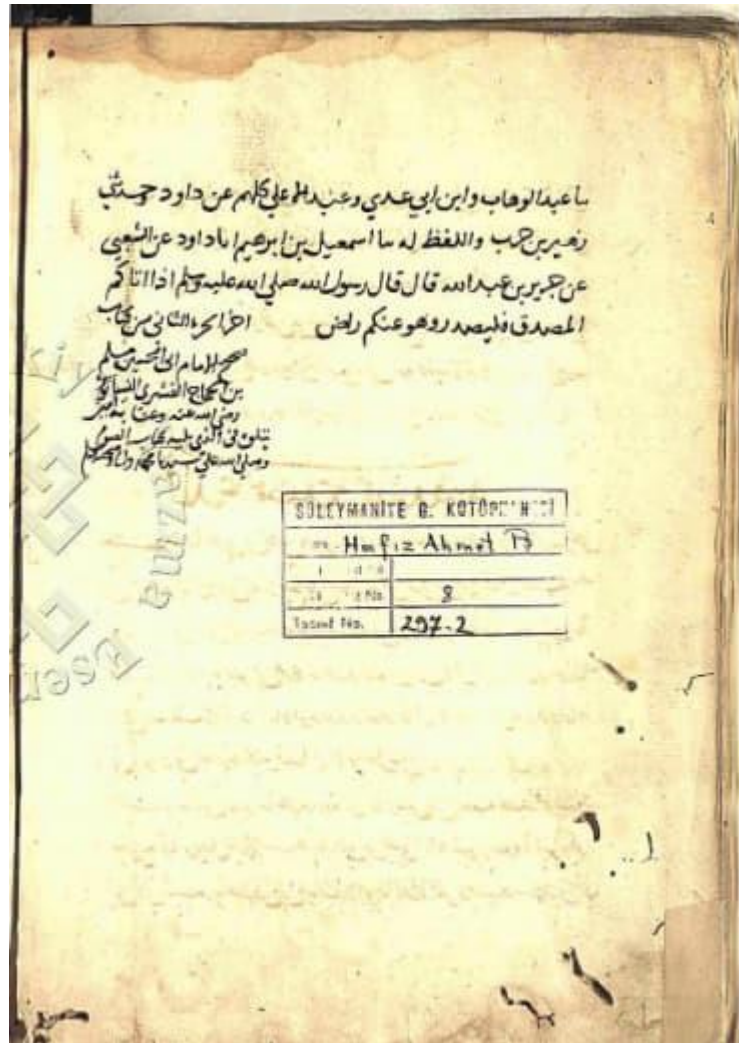 سا عبد الوهاب وابن ابي عدي وعبد الاعلي كلهم عن داود ح وحدثني
زهير بن حرب واللفظ له سا اسمعيل بن ابرهيم انا داود عن الشعبي
عن جرير بن عبد الله قال قال رسول الله صلي الله عليه وسلم اذا اتاكم
المصدق فليصدر وهو عنكم راض
اخر الجزء الثاني من كتاب
صحيح الامام ابي الحسين مسلم
بن الحجاج القشيري النيسابوري
رضي الله عنه وعنا به
يتلوه في الذي يليه كتاب الصوم
وصلي الله علي سيدنا محمد واله
SÜLEYMANİYE G. KÜTÜPHANESİ
Hafız Ahmet P
8
Tasnif No. 297-2
yazma
Eser